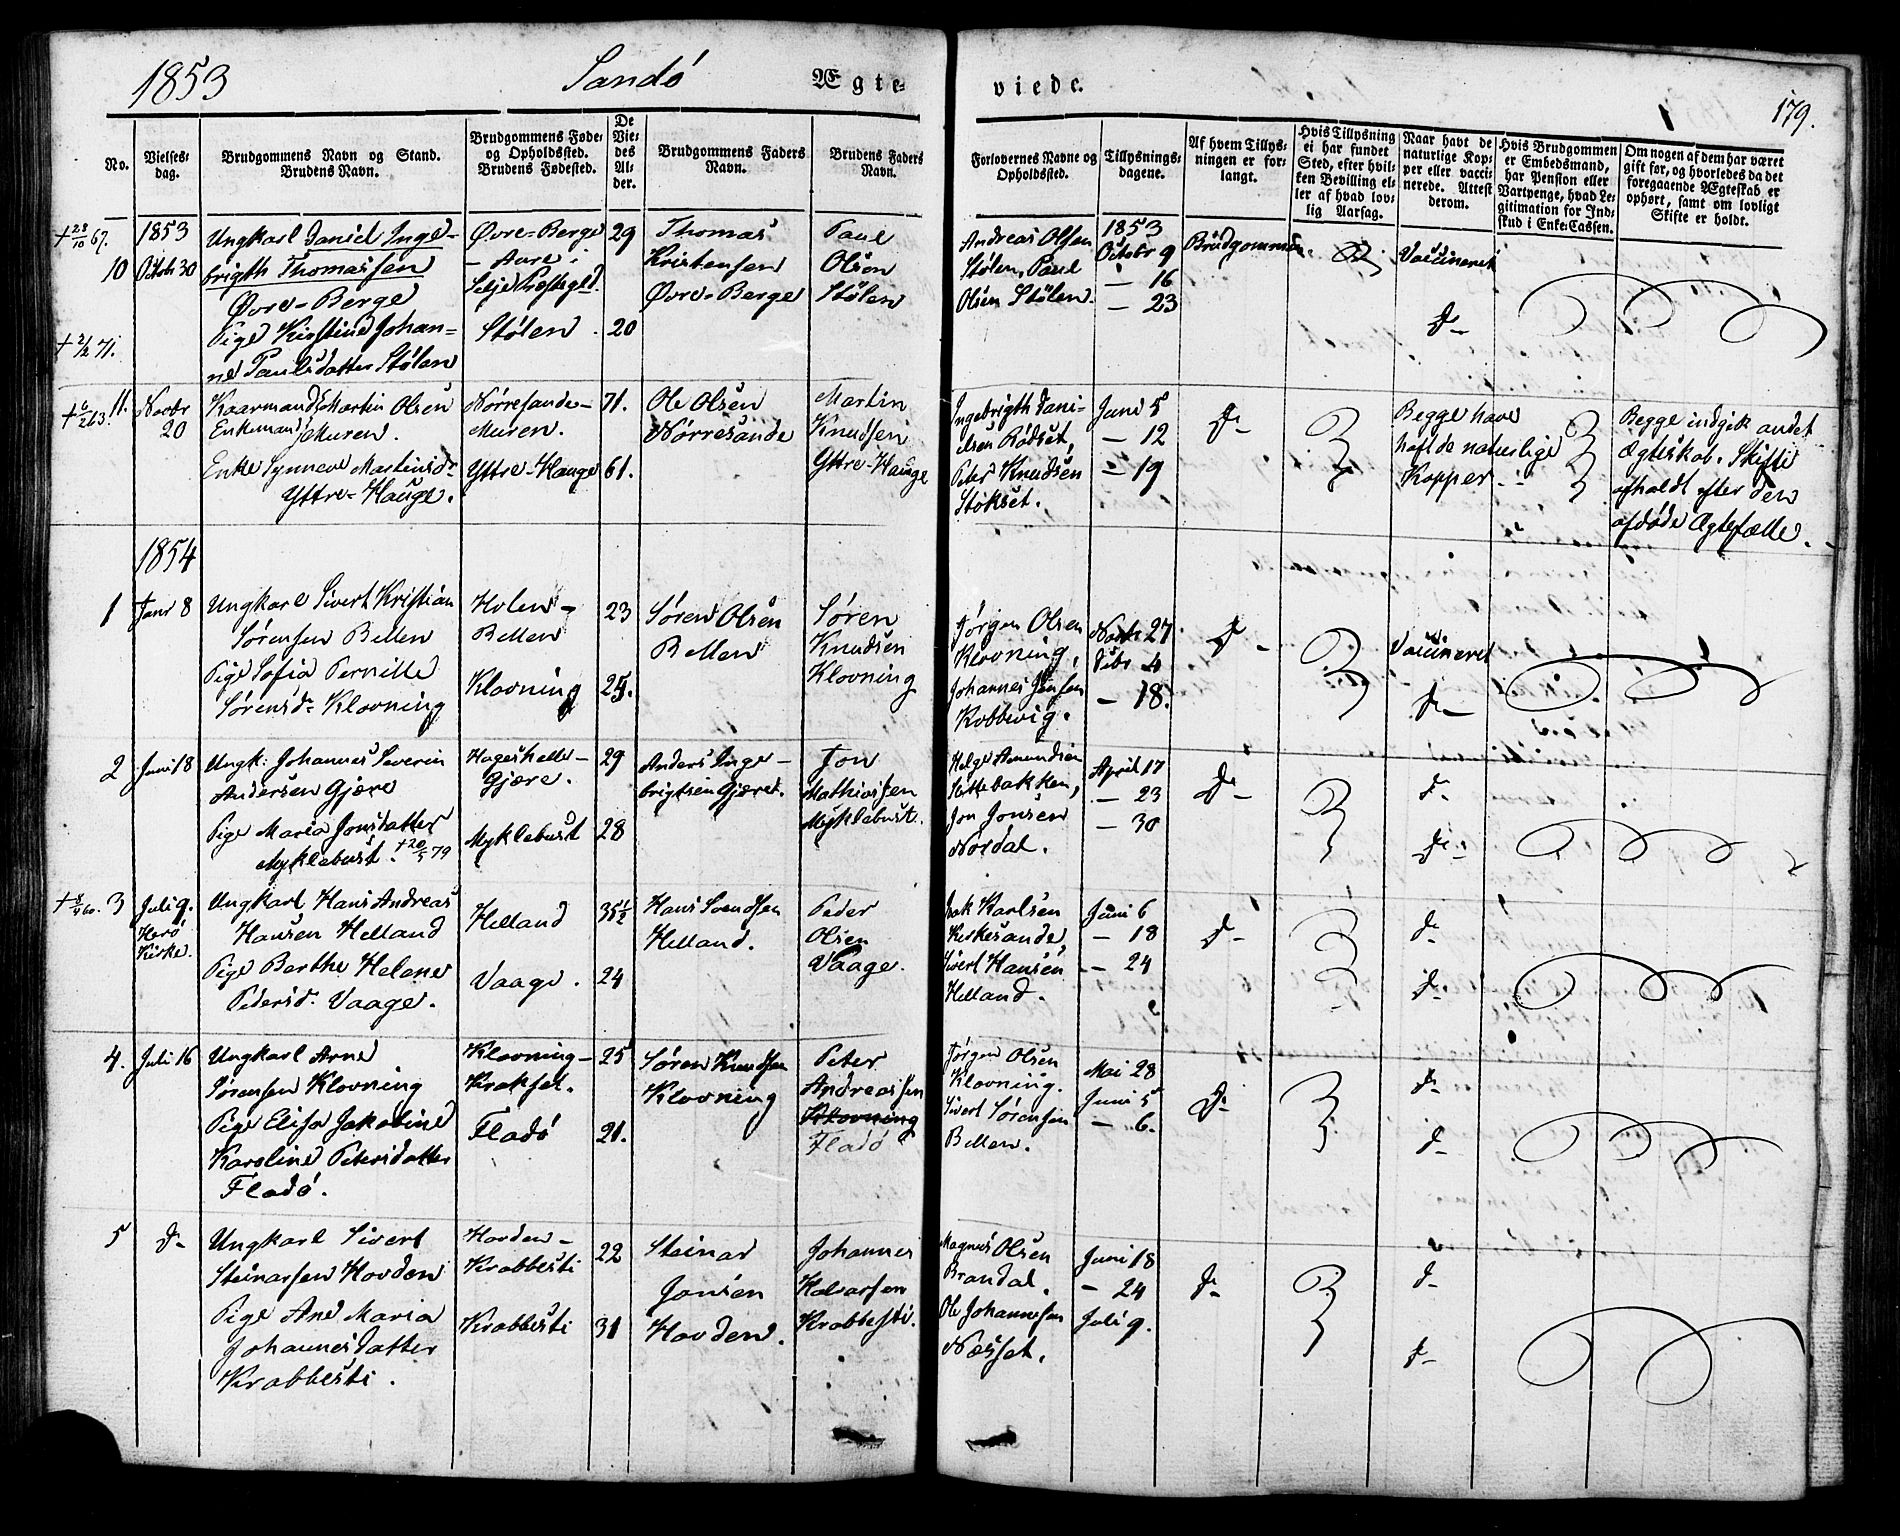 1853 Sandö Ægte-viede. 179.
No.
Vielses-
dag.
Brudgommens Navn og Stand.
Brudens Navn.
Brudgommens Føde-
og Opholdssted.
Brudens Fødested.
De
Vie-
des
Al-
der.
Brudgommens Faders
Navn.
Brudens Faders
Navn.
Forlovernes Navne og
Opholdssted.
Tillysnings-
dagene.
Af hvem Tillys-
ningen er for-
langt.
Hvis Tillysning
ei har fundet
Sted, efter hvil-
ken Bevilling el-
ler af hvad lov-
lig Aarsag.
Naar havt de
naturlige Kop-
per eller vacci-
nerede. Attest
derom.
Hvis Brudgommen
er Embedsmand,
har Pension eller
Vartpenge, hvad Le-
gitimation for Ind-
skud i Enke-Cassen.
Om nogen af dem har været
gift før, og hvorledes da det
foregaaende Ægteskab er
ophørt, samt om lovligt
Skifte er holdt.
† 28/10 67.
10
1853
Octob 30
Ungkarl Daniel Inge-
brigth Thomassen
Øvre-Berge
Pige Kirstine Johan=
ne Paulsdatter Stølen
† 2/2 71.
Øvre-Berge
- Aure.
Selje Præstegld.
Stølen.
29
20
Thomas
Kristensen
Øvre-Berge
Paul
Olsen
Stølen
Andreas Olsen
Stølen, Paul
Olsen Stølen.
1853
Octobr 9
— 16
— 23
Brudgommen.
Vaccineret
d-
11.
Novbr
20
Kaarmand Martin Olsen
Enkemand Muren.
Enke Synneve Martinsd-
Yttre-Hauge.
Nörresande-
Muren.
Yttre-Hauge
71.
61.
Ole Olsen
Nörresande
Martin
Knudsen
Yttre-Hauge
Ingebrigth Dani-
elsen Rödset,
Peter Knudsen
Stokset.
Juni 5
— 12
— 19
d-
Begge have
haft de naturlige
Kopper.
Begge indgik andet
Ægteskab. Skifte
afholdt efter den
afdøde Ægtefælle.
1854
1
Janr 8
Ungkarl Sivert Kristian
Sörensen Bellen
Pige Sofia Pernille
Sörensd- Klovning
Holen-
Bellen
Klovning
23
25.
Sören Olsen
Bellen
Sören
Knudsen
Klovning
Jörgen Olsen
Klovning,
Johannes Jensen
Kobbevig.
Novbr 27
Debr 4
— 18.
d-
Vaccineret
d-
2
Juni 18
Ungk: Johannes Severin
Andersen Gjære
Pige Maria Jonsdatter
Myklebust. † 20/5 79
Hageskelle-
Gjære.
Myklebust
29
28
Anders Inge-
brigtsen Gjæret.
Jon
Mathiassen
Myklebust.
Helge Amundsen
Slettebakken,
Jon Jonsen
Nordal.
April 17
— 23
— 30
d-
d-
d-
† 8/4 60.
3
Juli 9.
Herö
Kirke.
Ungkarl Hans Andreas
Hansen Helland
Pige Berthe Helene
Pedersd. Vaage.
Helland
Vaage.
35½
24
Hans Svendsen
Helland.
Peder
Olsen
Vaage.
Isak Karlsen
Kirkesande,
Sivert Hansen
Helland.
Juni 6
— 18
— 24
d-
d-
d-
4.
Juli 16
Ungkarl Arne
Sörensen Klovning
Pige Elisa Jakobine
Karoline Petersdatter
Fladö.
Klovning-
Kroksel.
Fladö
25
21.
Sören Knudsen
Klovning
Peter
Andreassen
Klovning
Fladö
Jörgen Olsen
Klovning.
Sivert Sörensen
Bellen.
Mai 28
Juni 5
— 6.
d-
d-
d-
5
d-
Ungkarl Sivert
Steinarsen Hovden
Pige Ane Maria
Johannesdatter
Krabbesti.
Hovden-
Krabbesti
Krabbesti
22
31
Steinar
Jonsen
Hovden.
Johannes
Halvarsen
Krabbesti.
Magnus Olsen
Brandal.
Ole Johannesen
Næsset.
Juni 18
— 24
Juli 9.
d-
d-
d-